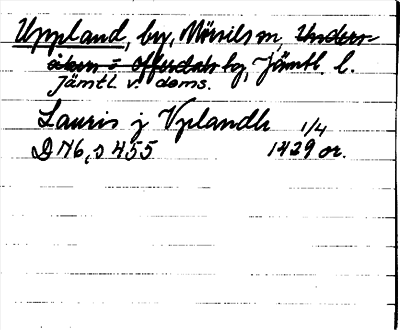 Uppland, by, Mörsils sn, Unders-
åkers o Offerdals tg, Jämtl. l.
Jämtl. v. doms.
Lauris j Vplandh 1/4
DN 6, s 455 1429 or.